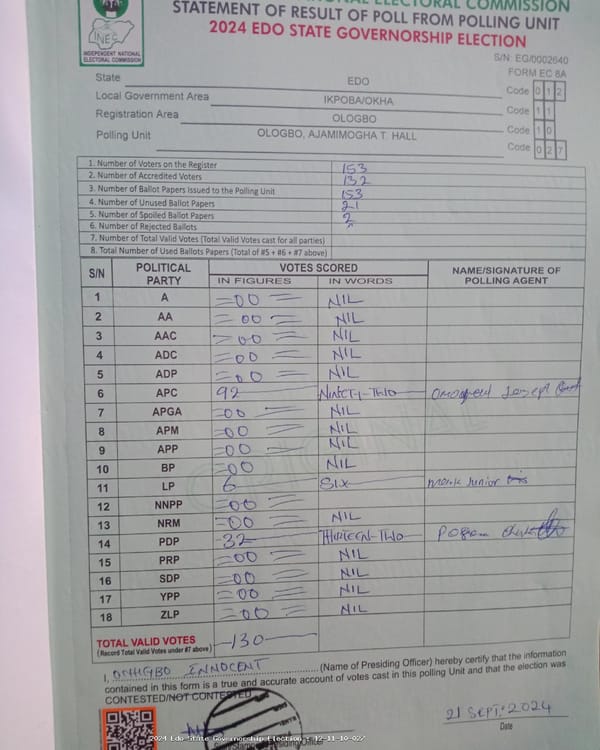 ELECTORAL COMMISSION
STATEMENT OF RESULT OF POLL FROM POLLING UNIT
2024 EDO STATE GOVERNORSHIP ELECTION
INEC
INDEPENDENT NATIONAL
ELECTORAL COMMISSION
S/N: EG/0002640
FORM EC 8A
State EDO Code 0 1 2
Local Government Area IKPOBA/OKHA Code 1 1
Registration Area OLOGBO Code 1 0
Polling Unit OLOGBO, AJAMIMOGHA T. HALL Code 0 2 7
1. Number of Voters on the Register 153
2. Number of Accredited Voters 132
3. Number of Ballot Papers Issued to the Polling Unit 153
4. Number of Unused Ballot Papers 21
5. Number of Spoiled Ballot Papers 2
6. Number of Rejected Ballots
7. Number of Total Valid Votes (Total Valid Votes cast for all parties)
8. Total Number of Used Ballots Papers (Total of #5 + #6 + #7 above)
S/N POLITICAL PARTY VOTES SCORED NAME/SIGNATURE OF POLLING AGENT
IN FIGURES IN WORDS
1 A =00= NIL
2 AA =00= NIL
3 AAC =00= NIL
4 ADC =00= NIL
5 ADP =00= NIL
6 APC 92 NINETY-TWO
7 APGA =00= NIL
8 APM =00= NIL
9 APP =00= NIL
10 BP =00 NIL
11 LP 6 SIX Junior
12 NNPP =00=
13 NRM =00= NIL
14 PDP 32 THIRTEEN-TWO
15 PRP =00= NIL
16 SDP =00= NIL
17 YPP =00= NIL
18 ZLP =00= NIL
TOTAL VALID VOTES 130
(Record Total Valid Votes under #7 above)
I, INNOCENT (Name of Presiding Officer) hereby certify that the information
contained in this form is a true and accurate account of votes cast in this polling Unit and that the election was
CONTESTED/NOT CONTESTED
21 SEPT. 2024
Date
2024 Edo State Governorship Election